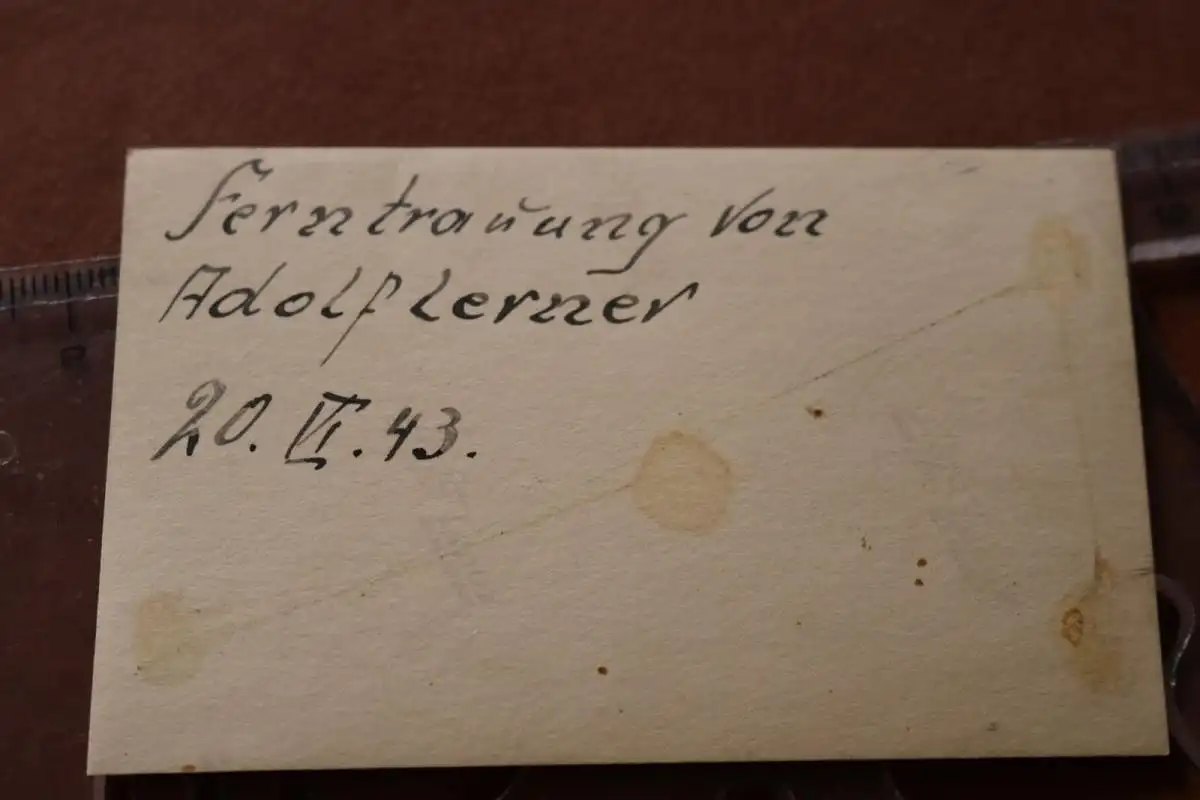 Ferntrauung von
Adolf Lerner
20. VI. 43.